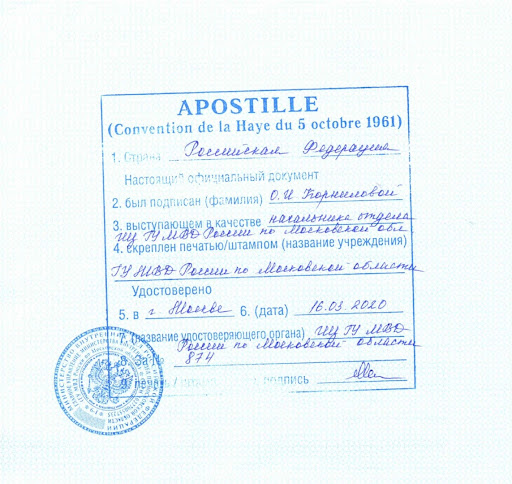 APOSTILLE
(Convention de la Haye du 5 octobre 1961)
1. Страна Российская Федерация
Настоящий официальный документ
2. был подписан (фамилия) О.И Корниловой
3. выступающем в качестве начальника отдела
ИЦ ГУ МВД России по Московской обл
4. скреплен печатью/штампом (название учреждения)
ГУ МВД России по Московской области
Удостоверено
5. в г Москве 6. (дата) 16.03.2020
7. (название удостоверяющего органа) ИЦ ГУ МВД
России по Московской области
8. За № 874
9. печать / подпись